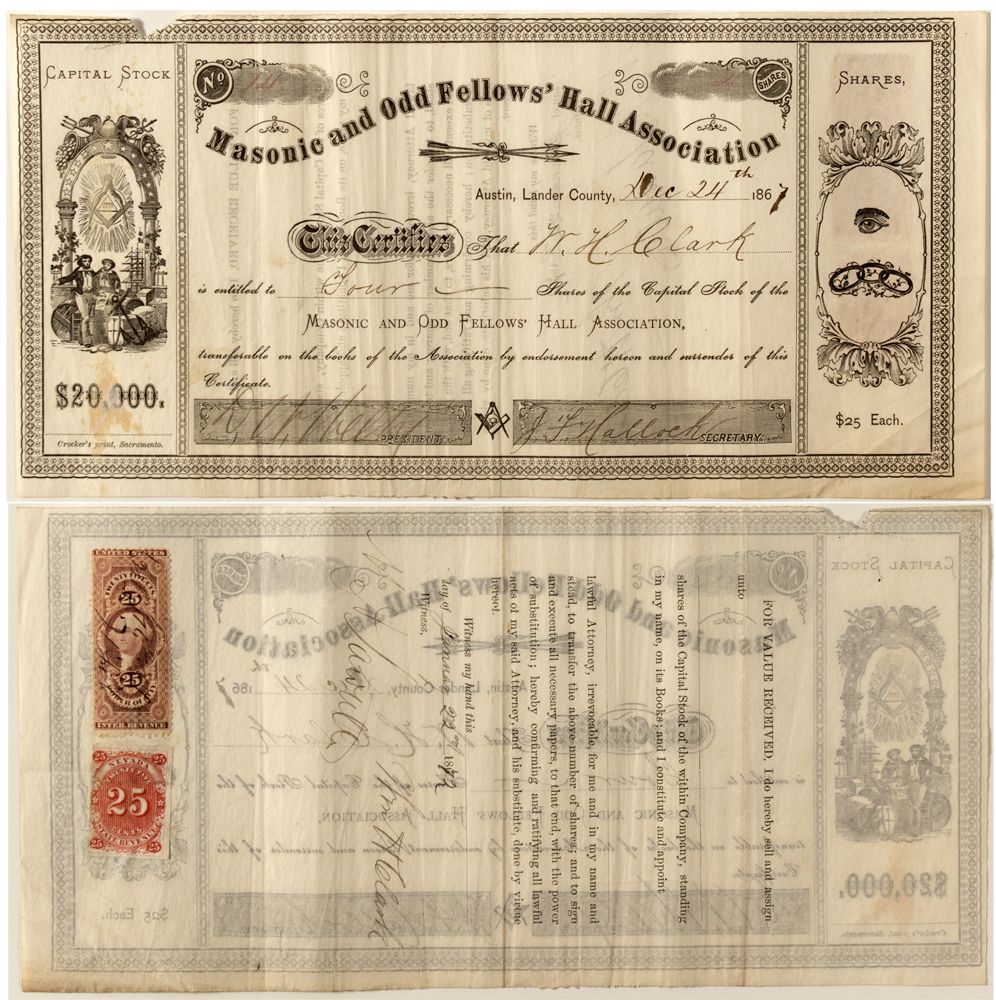 CAPITAL STOCK
$20,000.
Crocker's print, Sacramento.
No
SHARES
Masonic and Odd Fellows' Hall Association
Austin, Lander County, Dec 24th 1867
This Certifies That W. H. Clark
is entitled to Four Shares of the Capital Stock of the
MASONIC AND ODD FELLOWS' HALL ASSOCIATION,
transferable on the books of the Association by endorsement hereon and surrender of this
Certificate.
PRESIDENT.
J. F. Hallock SECRETARY.
SHARES,
$25 Each.
FOR VALUE RECEIVED, I do hereby sell and assign
unto
shares of the Capital Stock of the within Company, standing
in my name, on its Books; and I constitute and appoint
lawful Attorney, irrevocable, for me and in my name and
stead, to transfer the above number of shares; and to sign
and execute all necessary papers, to that end, with the power
of substitution; hereby confirming and ratifying all lawful
acts of my said Attorney, and his substitute, done by virtue
hereof.
Witness my hand this
day of 22nd 1872
Witness,
Wm H Clark
UNITED STATES
25
25
INTER. REVENUE
25 NEVADA 25
25
CENTS
25 STATE REVENUE 25